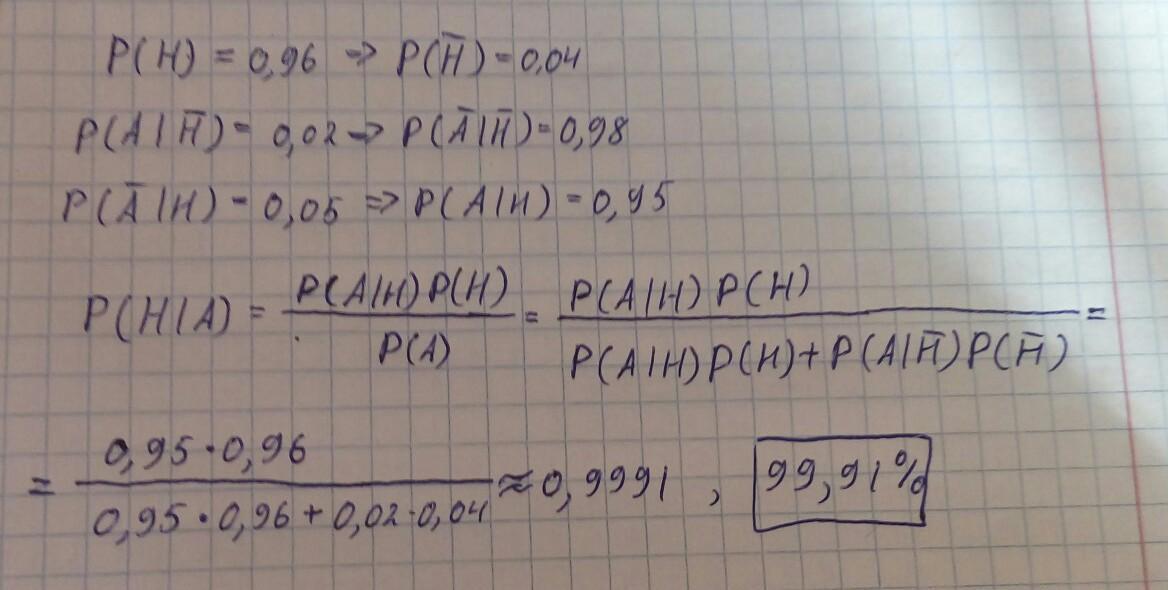 P(H) = 0,96 => P(H̅) = 0,04
P(A|H̅) = 0,02 => P(A̅|H̅) = 0,98
P(A̅|H) = 0,05 => P(A|H) = 0,95
P(H|A) = P(A|H) P(H) / P(A) = P(A|H) P(H) / P(A|H) P(H) + P(A|H̅) P(H̅) =
= 0,95 · 0,96 / 0,95 · 0,96 + 0,02 · 0,04 ≈ 0,9991 , 99,91%